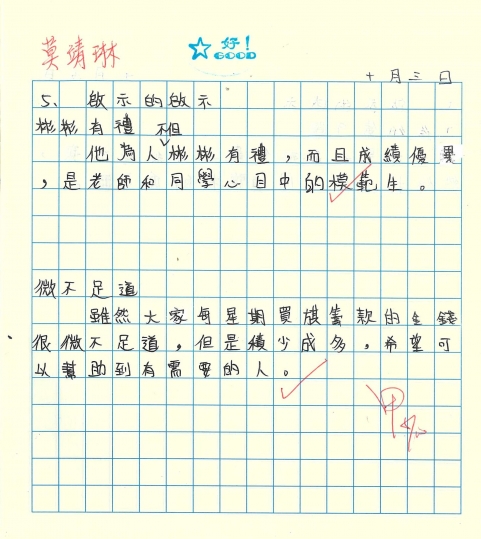 莫靖琳
好！
GOOD
十月三日
5、啟示的啟示
彬彬有禮
不但
他為人彬彬有禮，而且成績優異
，是老師和同學心目中的模範生。
微不足道
雖然大家每星期買旗籌款的金錢
很微不足道，但是積少成多，希望可
以幫助到有需要的人。
甲